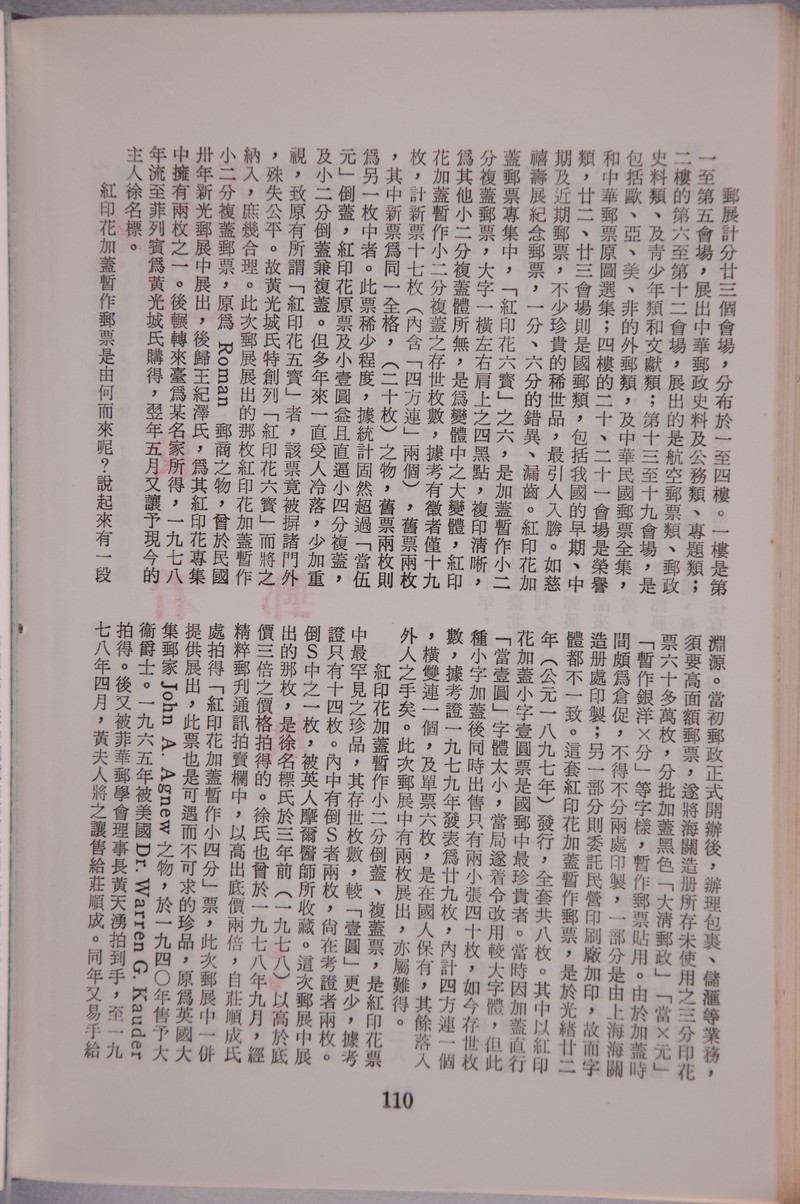 郵展計分廿三個會場，分布於一至四樓。一樓是第
一至第五會場，展出中華郵政史料及公務類、專題類；
二樓的第六至第十二會場，展出的是航空郵票類、郵政
史料類、及青少年類和文獻類；第十三至十九會場，是
包括歐、亞、美、非的外郵類，及中華民國郵票全集，
和中華郵票原圖選集；四樓的二十、二十一會場是榮譽
類，廿二、廿三會場則是國郵類，包括我國的早期、中
期及近期郵票，不少珍貴的稀世品，最引人入勝。如慈
禧壽展紀念郵票，一分、六分的錯異、漏齒。紅印花加
蓋郵票專集中，「紅印花六寳」之六，是加蓋暫作小二
分複蓋郵票，大字一橫左右肩上之四黑點，複印清晰，
爲其他小二分複蓋體所無，是爲變體中之大變體，紅印
花加蓋暫作小二分複蓋之存世枚數，據考有徵者僅十九
枚，計新票十七枚（內含「四方連」兩個），舊票兩枚
，其中新票爲同一全格，（二十枚）之物，舊票兩枚則
爲另一枚中者。此票稀少程度，據統計固然超過「當伍
元」倒蓋，紅印花原票及小壹圓益且直逼小四分複蓋，
及小二分倒蓋兼複蓋。但多年來一直受人冷落，少加重
視，致原有所謂「紅印花五寳」者，該票竟被摒諸門外
，殊失公平。故黃光城氏特創列「紅印花六寳」而將之
納入，庶幾合理。此次郵展展出的那枚紅印花加蓋暫作
小二分複蓋郵票，原爲 Roman 郵商之物，曾於民國
卅年新光郵展中展出，後歸王紀澤氏，爲其紅印花專集
中擁有兩枚之一。後輾轉來臺爲某名家所得，一九七八
年流至菲列賓爲黃光城氏購得，翌年五月又讓予現今的
主人徐名標。
紅印花加蓋暫作郵票是由何而來呢？說起來有一段
淵源。當初郵政正式開辦後，辦理包裹、儲滙等業務，
須要高面額郵票，遂將海關造册所存未使用之三分印花
票六十多萬枚，分批加蓋黑色「大清郵政」「當×元」
「暫作銀洋×分」等字樣，暫作郵票貼用。由於加蓋時
間頗爲倉促，不得不分兩處印製，一部分是由上海海關
造册處印製；另一部分則委託民營印刷廠加印，故而字
體都不一致。這套紅印花加蓋暫作郵票，是於光緒廿二
年（公元一八九七年）發行，全套共八枚。其中以紅印
花加蓋小字壹圓票是國郵中最珍貴者。當時因加蓋直行
「當壹圓」字體太小，當局遂着令改用較大字體，但此
種小字加蓋後同時出售只有兩小張四十枚，如今存世枚
數，據考證一九七九年發表爲廿九枚，內計四方連一個
，橫雙連一個，及單票六枚，是在國人保有，其餘落入
外人之手矣。此次郵展中有兩枚展出，亦屬難得。
紅印花加蓋暫作小二分倒蓋、複蓋票，是紅印花票
中最罕見之珍品，其存世枚數，較「壹圓」更少，據考
證只有十四枚。內中有倒S者兩枚，尙在考證者兩枚。
倒S中之一枚，被英人摩爾醫師所收藏。這次郵展中展
出的那枚，是徐名標氏於三年前（一九七八）以高於底
價三倍之價格拍得的。徐氏也曾於一九七八年九月，經
精粹郵刋通訊拍賣欄中，以高出底價兩倍，自莊順成氏
處拍得「紅印花加蓋暫作小四分」票，此次郵展中一併
提供展出，此票也是可遇而不可求的珍品，原爲英國大
集郵家 John A. Agnew 之物，於一九四〇年售予大
衞爵士。一九六五年被美國 Dr. Warren G. Kauder
拍得。後又被菲華郵學會理事長黃天湧拍到手，至一九
七八年四月，黃夫人將之讓售給莊順成。同年又易手給
110